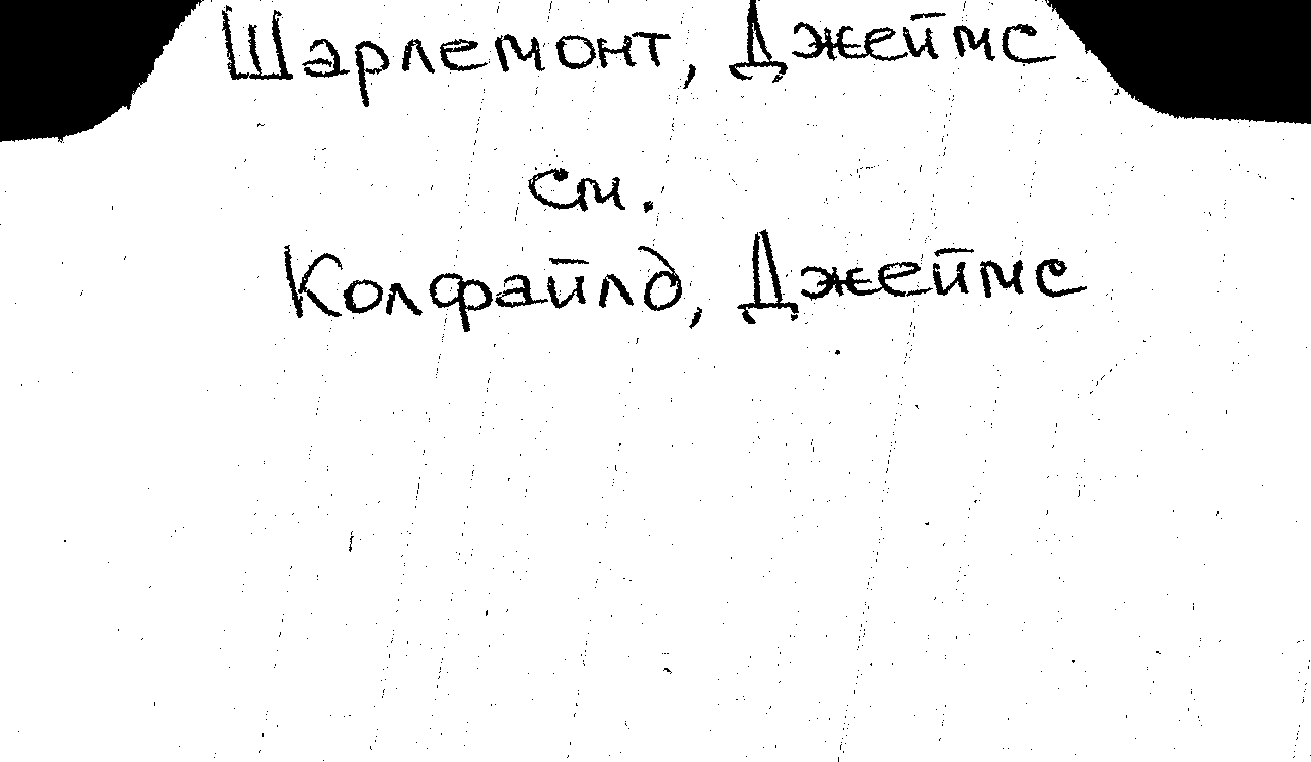 Шарлемонт, Джеймс
см.
Колфайлд, Джеймс